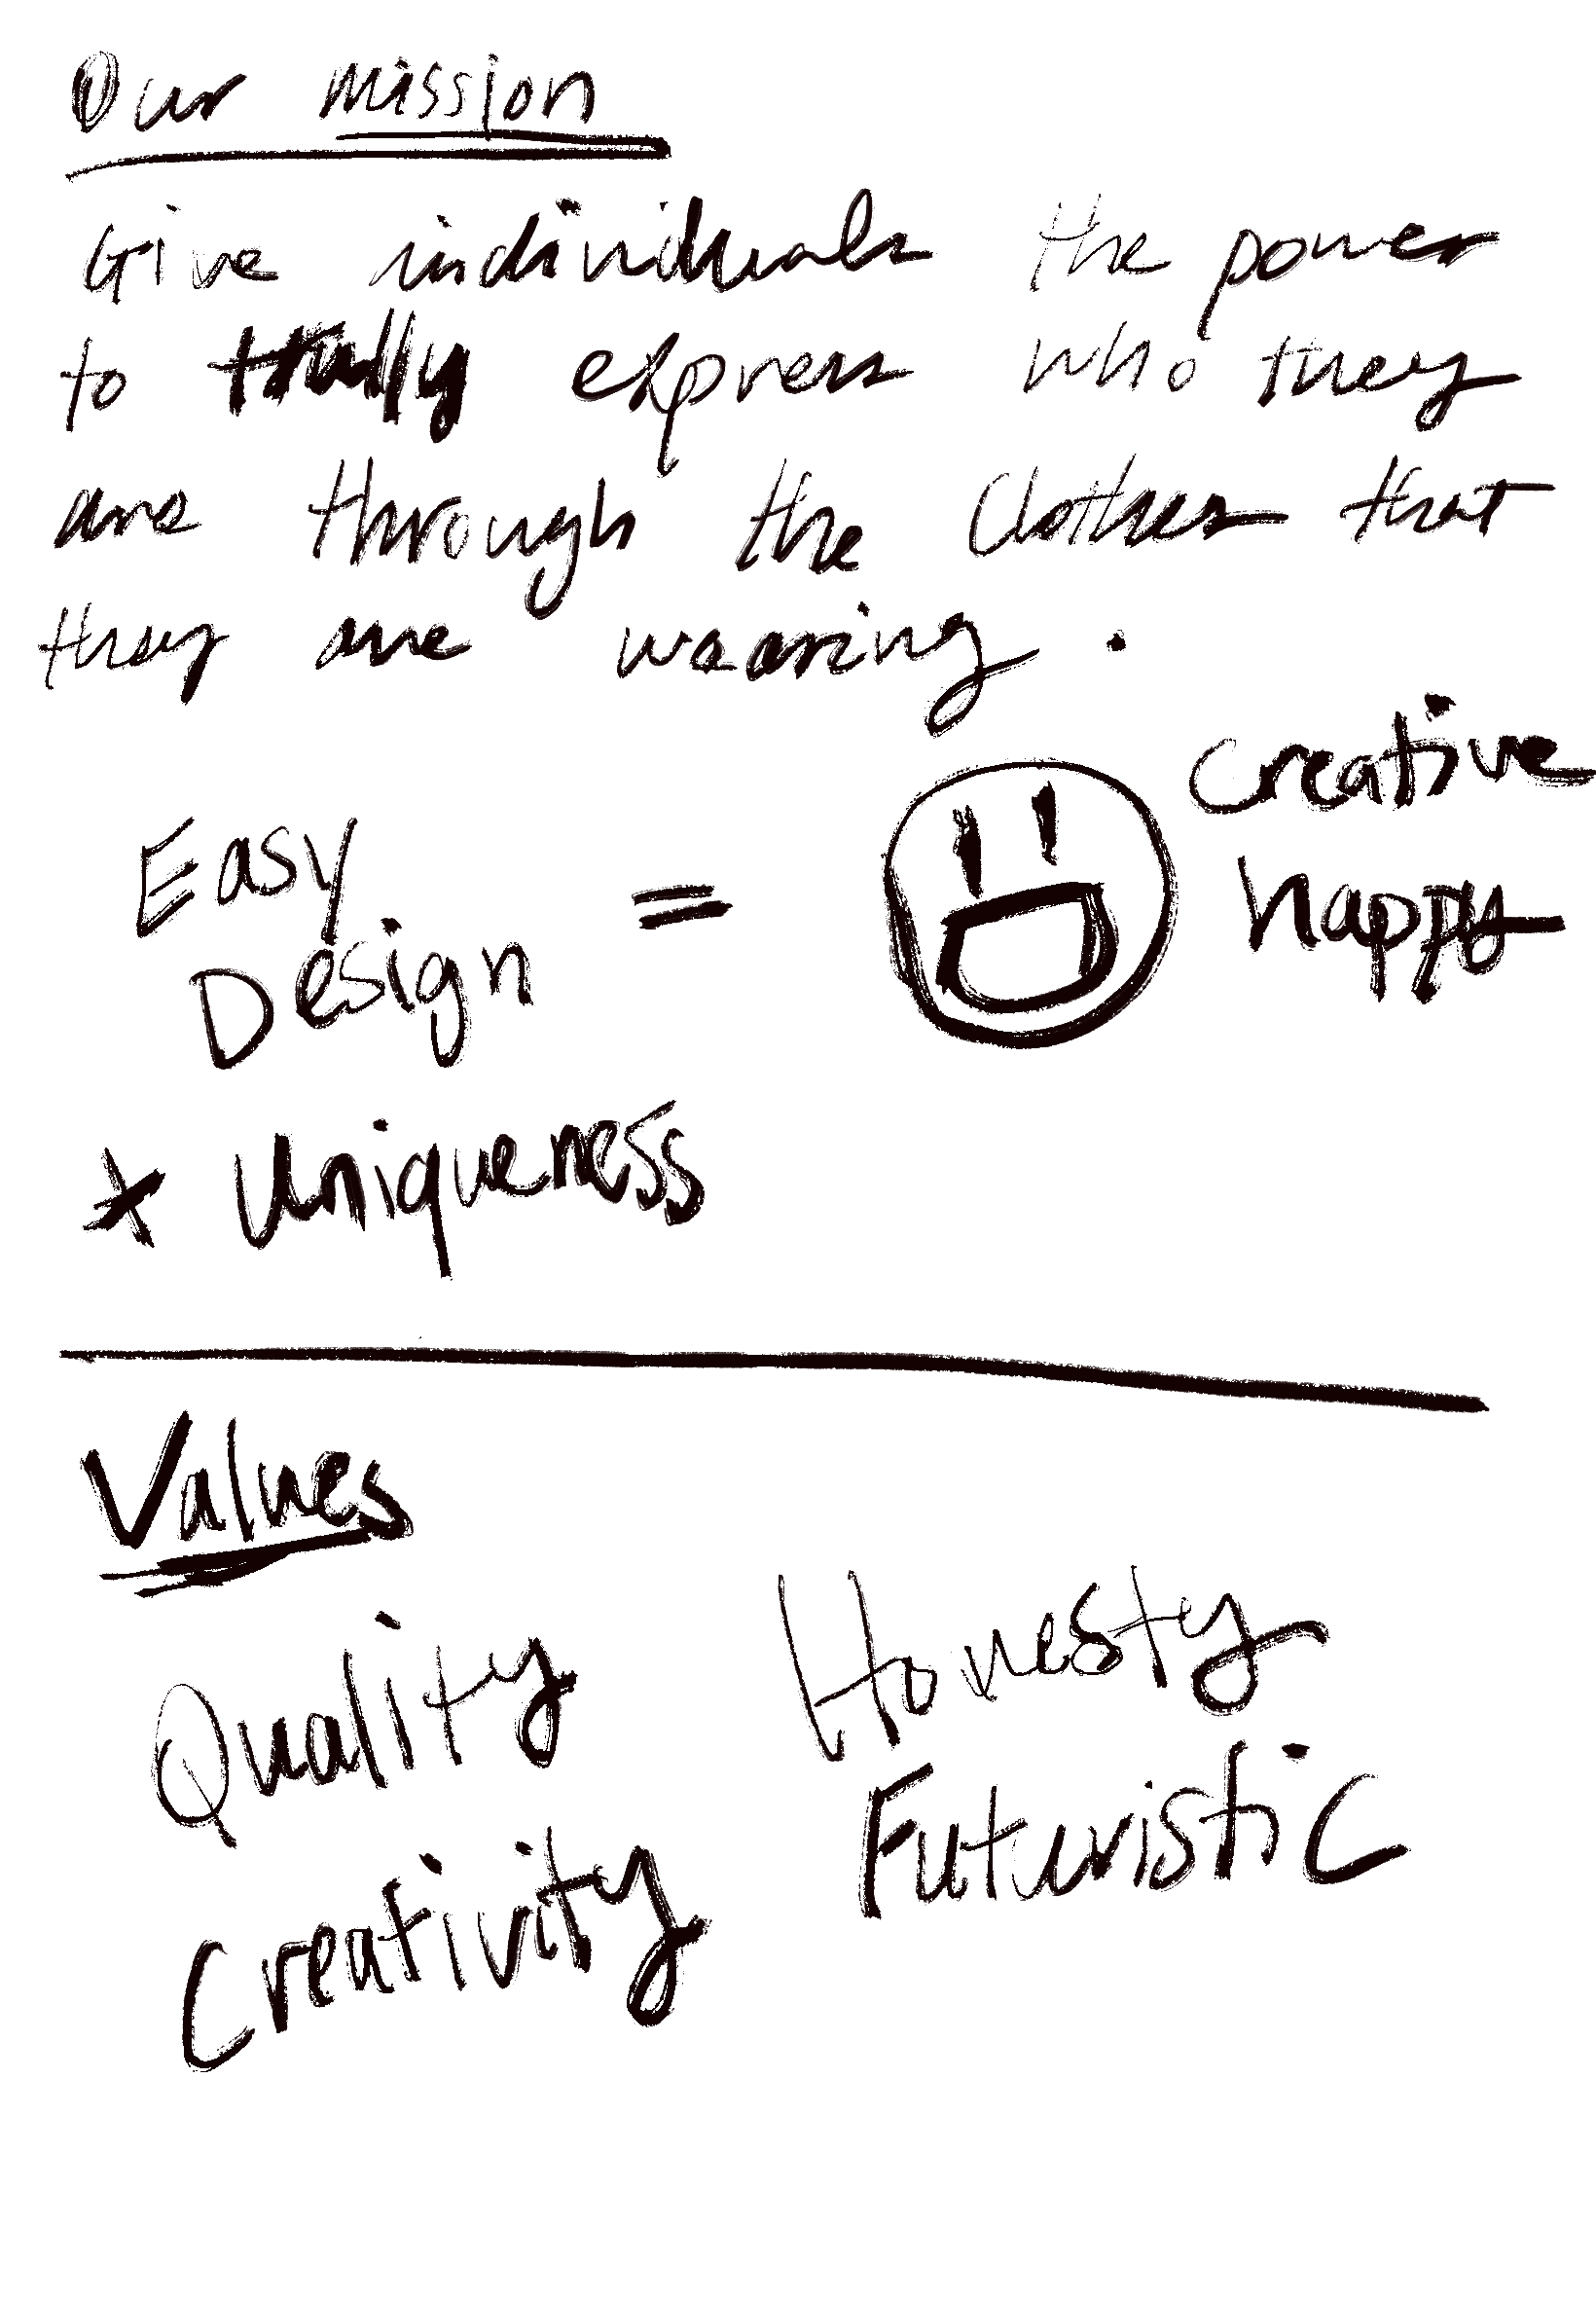 Our mission
Give individuals the power
to trully express who they
are through the clothes that
they are wearing.
Easy
Design =
creative
happy
* Uniqueness
Values
Quality
Honesty
Creativity
Futuristic